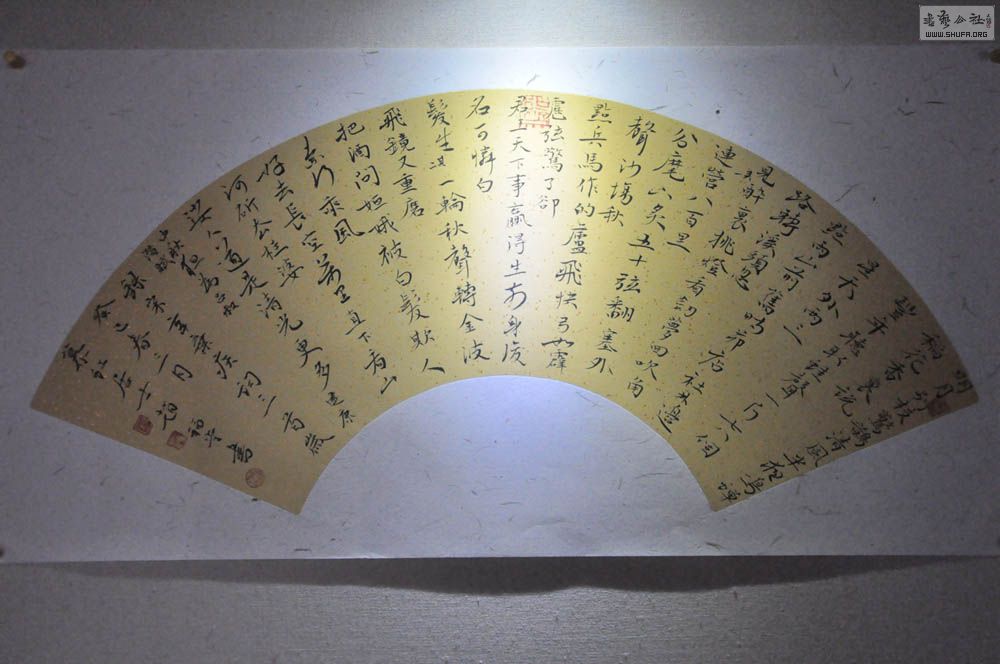 明月别枝驚鵲清風半夜鳴蟬
稻花香裏說
豐年聽取蛙聲一片七八個
星天外兩三
點雨山前舊時茅店社林邊
路轉溪頭忽
見醉裏挑燈看劍夢回吹角
連營八百里
分麾下炙五十弦翻塞外
聲沙場秋
點兵馬作的盧飛快弓如霹
靂弦驚了卻
君王天下事贏得生前身後
名可憐白
髮生一輪秋聲轉金波
飛鏡又重磨
把酒問姮娥被白髮欺人
奈何乘風
好去長空萬里直下看山
河斫去桂婆
娑人道是清光更多
錄宋辛棄疾詞三首歲
癸巳春二月
居士福書
書藝公社
WWW.SHUFA.ORG